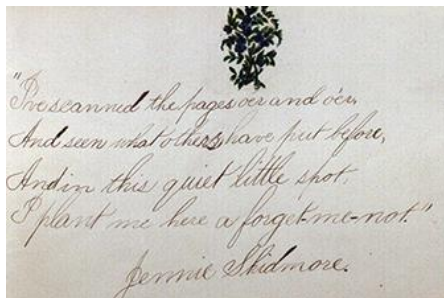 "I've scanned the pages oer and o'er,
And seen what others have put before,
And in this quiet little spot,
I plant me here a forget-me-not."
Jennie Skidmore.